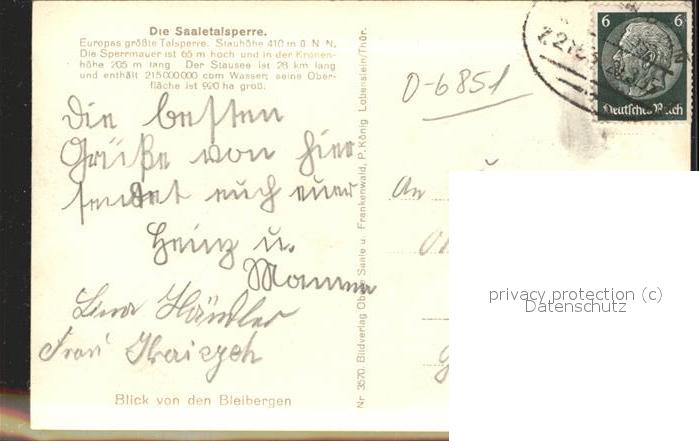 Die Saaletalsperre.
Europas größte Talsperre. Stauhöhe 410 m ü. N. N.
Die Sperrmauer ist 65 m hoch und in der Kronen-
höhe 205 m lang. Der Stausee ist 28 km lang
und enthält 215000000 cbm Wasser; seine Ober-
fläche ist 920 ha groß.
Die besten
Grüße von hier
sendet euch euer
Heinz u.
Mamma
Lina Händler
Frau
Blick von den Bleibergen
Nr 3570. Bildverlag Obere Saale u. Frankenwald, P. König Lobenstein/Thür.
O-6851
An
6 6
Deutsches Reich
privacy protection (c)
Datenschutz